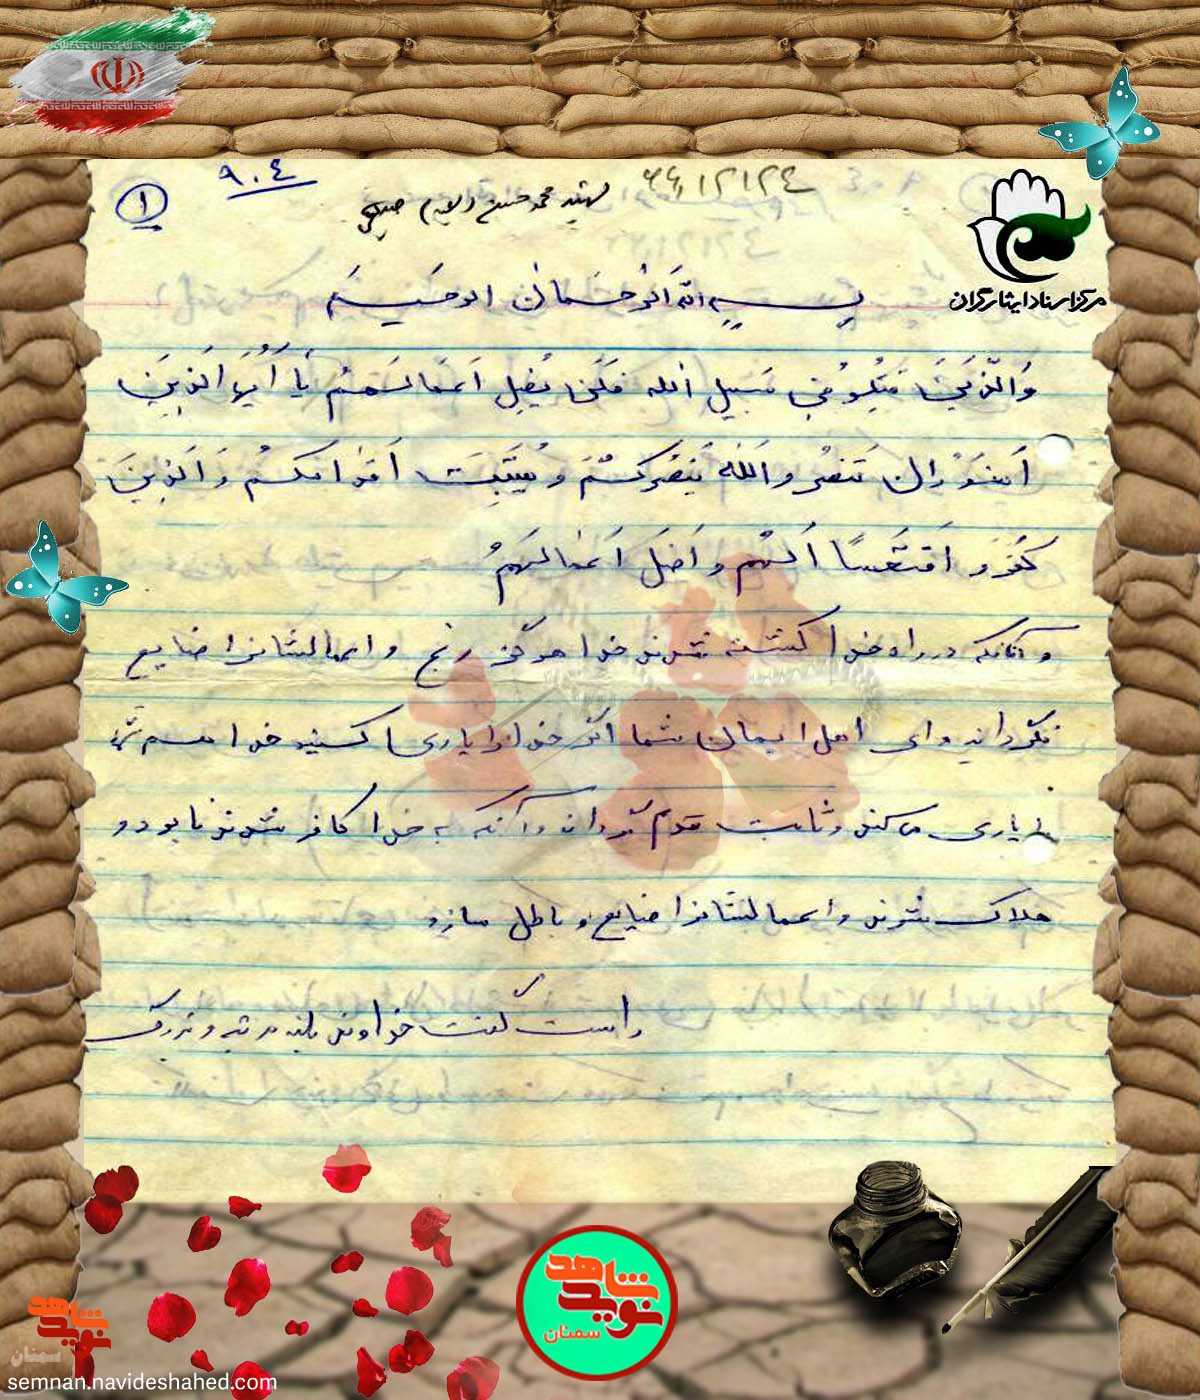 ۶۶/۱۲/۲۴
شهید محمد حسن
۹۰۴
۱
مرکز اسناد ایثارگران
بسم الله الرحمان الرحیم
وَالَّذینَ قُتِلُو فی سَبیلِ الله فَلَن یُضِل اَعمالَهُم یا اَیُّهَا الَذینَ
آمَنُو اِن تَنصُرو الله یَنصُرکُم وَ یُثَبِت اَقدامَکُم وَ الَذینَ
کَفَرو فَتَعسًا لَهُم و اَضَل اَعمالَهُم
و آنانکه در راه خدا کشته شدند خدا هرگز رنج و اعمالشانرا ضایع
نگرداند و ای اهل ایمان شما اگر خدا را یاری کنید خدا هم شما
را یاری می کند و ثابت قدم گرداند و آنانکه به خدا کافر شدند نابود و
هلاک شوند و اعمالشانرا ضایع و باطل سازد
راست گفت خداوند بلند مرتبه و بزرگ
شاهد
نوید
سمنان
شاهد
نوید
سمنان
semnan.navideshahed.com